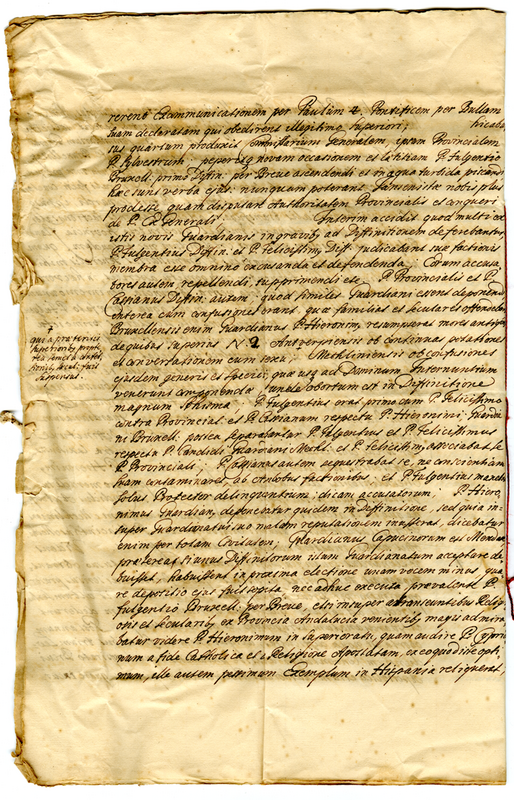 rerent Excommunicationem per Paulum 4. Pontificem per Bullam
suam declaratam qui obedirent illegitimo superiori; fabrica
sus quartum produxit Commissarium Generalem, ipsum Provincialem
P. Sylvestrum: peperitq novam occasionem et latitiam P. Fulgentio
Bruxell: primo Diffin: per Breve ascendendi et in aqua turbida piscandi
hæc sunt verba ejus: nunquam poterant Jansenistæ nobis plus
prodesse, quam disputare Authoritatem Provincialis et conqueri
de P. Ex Generali. Interim accidit quod multi ex
istis novis Guardianis in gravibq ad Diffinitionem deferebantur,
P. Fulgentius Diffin. et P. Felicissimq Diff. judicabant suæ factionis
membra esse omnino excusanda et defendenda. Coram accusa,
tores autem repellendi, supprimendi etc. P. Provincialis et P.
Cassianus Diffin: autem: quod similes Guardiani essent deponendi
interea cum confusiones erant, quæ familias et sæculares offendebant
Bruxellensis enim Guardianus P. Hieronimq, resumpserat mores antiquos
de quibus superius N 2 Antverpiensis ob continuas potationes
et conversationem cum sexu. Mechliniensis ob confusiones
ejusdem generis et speciei, quæ usq ad Dominum Internuntium
venerunt componendæ. Unde obortum est in Diffinitione
magnum schisma: P. Fulgentius erat primo cum P. Felicissimo
contra Provincialem et P. Cassianum respectu P. Hieronimi Guardia
ni Bruxell: postea separabantur P. Fulgentius et P. Felicissimus
respectu P. Candidi Guardiani Mechl: et P. Felicissimq associabat se
P. Provinciali; P. Cassianus autem sequestrabat se, ne conscientiam
suam contaminaret ab ambobus factionibus; et P. Fulgentius mansit
solus Protector delinquentium: dicam accusatorum. P. Hiero,
nimus Guardian, defendebatur quidem in Diffinitione, sed quia in,
super Guardianatui suo malam reputationem inusserat, dicebatur
enim per totam Civitatem; Guardianus Capucinorum est
præterea si unus Diffinitorum illum Guardianatum acceptare de,
buisset, habuissent in proxima electione unam vocem minus, qua,
re depositio ejus fuit nec adhuc executa prævalente P.
Fulgentio Bruxell: per Breve, etsi insuper a transeuntibus Religi,
osis et sæcularibq ex Provincia Andalucia venientibq magis admira,
batur videre P. Hieronimum in superioratu, quam audire P. Cypria
num a fide Catholica et a Religione Apostatam, ex eo quod ire opti,
mum, ille autem pessimum Exemplum in Hispania reliquerat,
+
qui a præteritis
functionibq propte,
rea
fuit
suspensus.